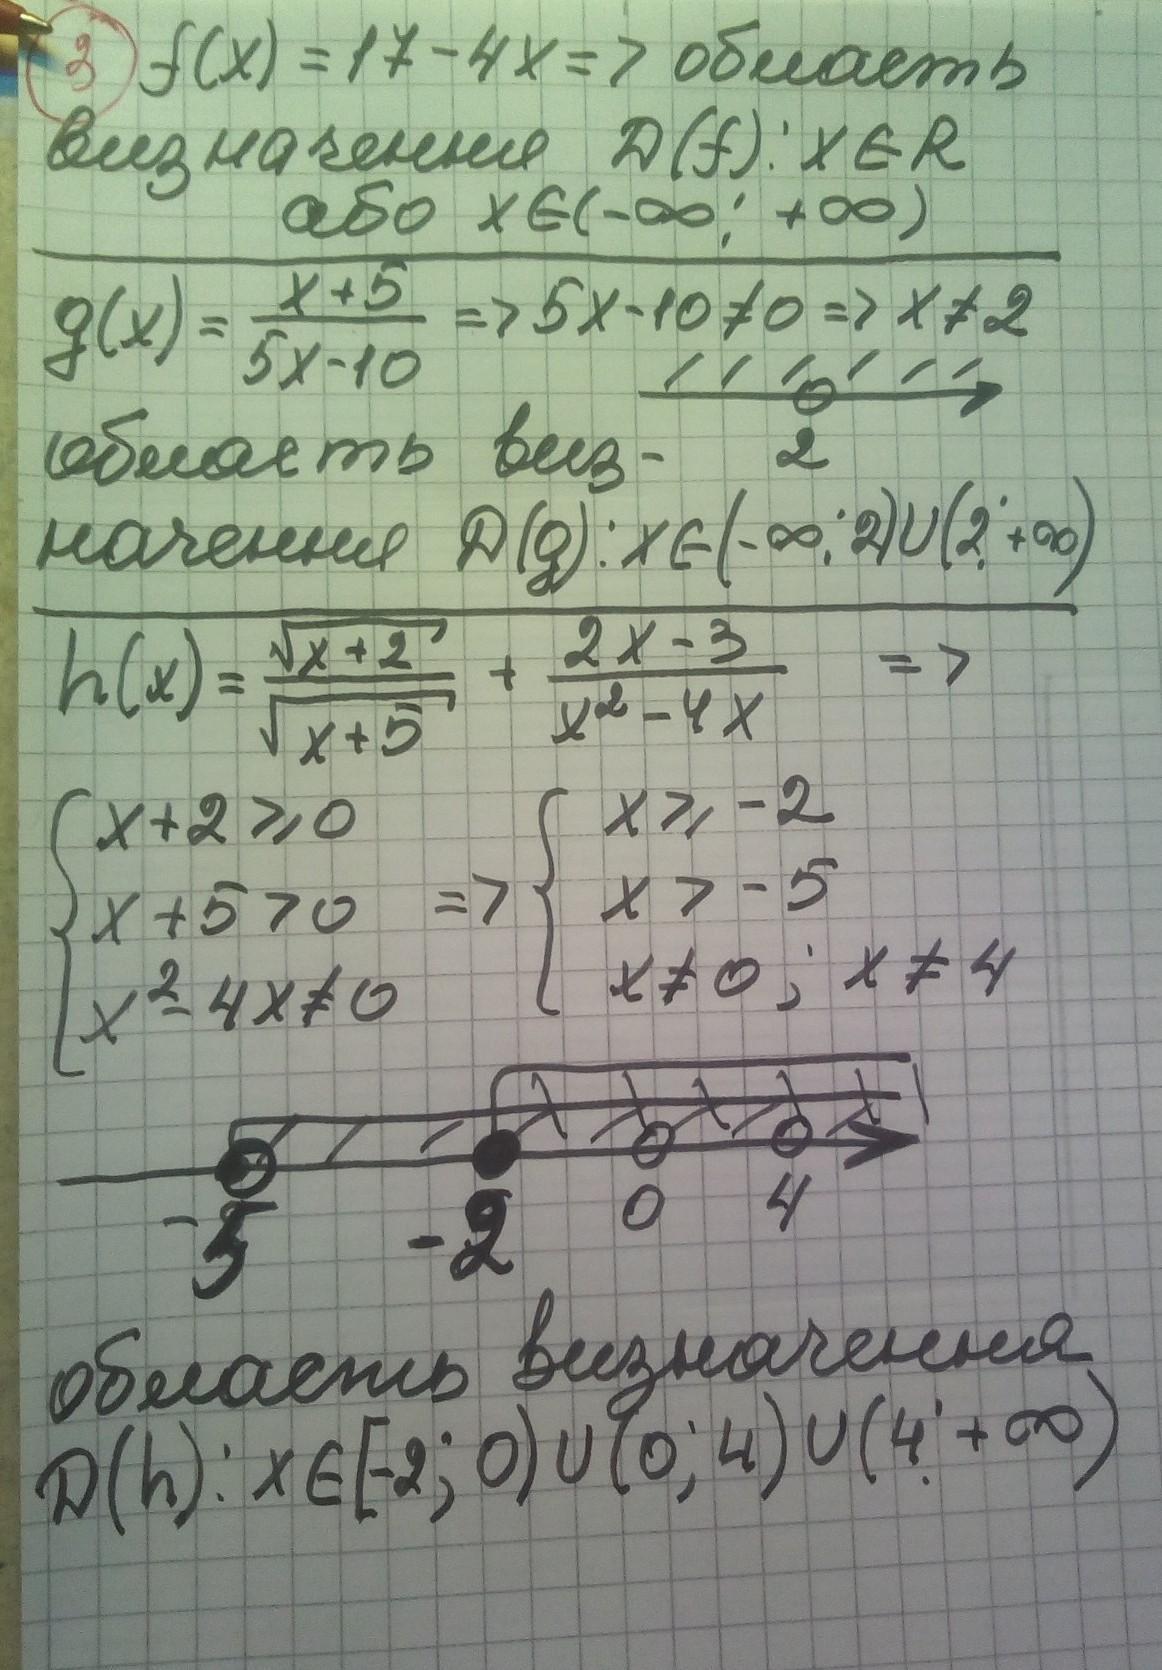 3 f(x) = 17 - 4x => область
визначення D(f): x∈R
або x∈(-∞; +∞)
g(x) = (x+5)/(5x-10) => 5x-10≠0 => x≠2
область виз- 2
начення D(g): x∈(-∞; 2)∪(2; +∞)
h(x) = √(x+2)/√(x+5) + (2x-3)/(x²-4x) =>
{ x+2≥0 { x≥-2
x+5>0 => x>-5
x²-4x≠0 x≠0; x≠4
-5 -2 0 4
область визначення
D(h): x∈[-2; 0)∪(0; 4)∪(4; +∞)